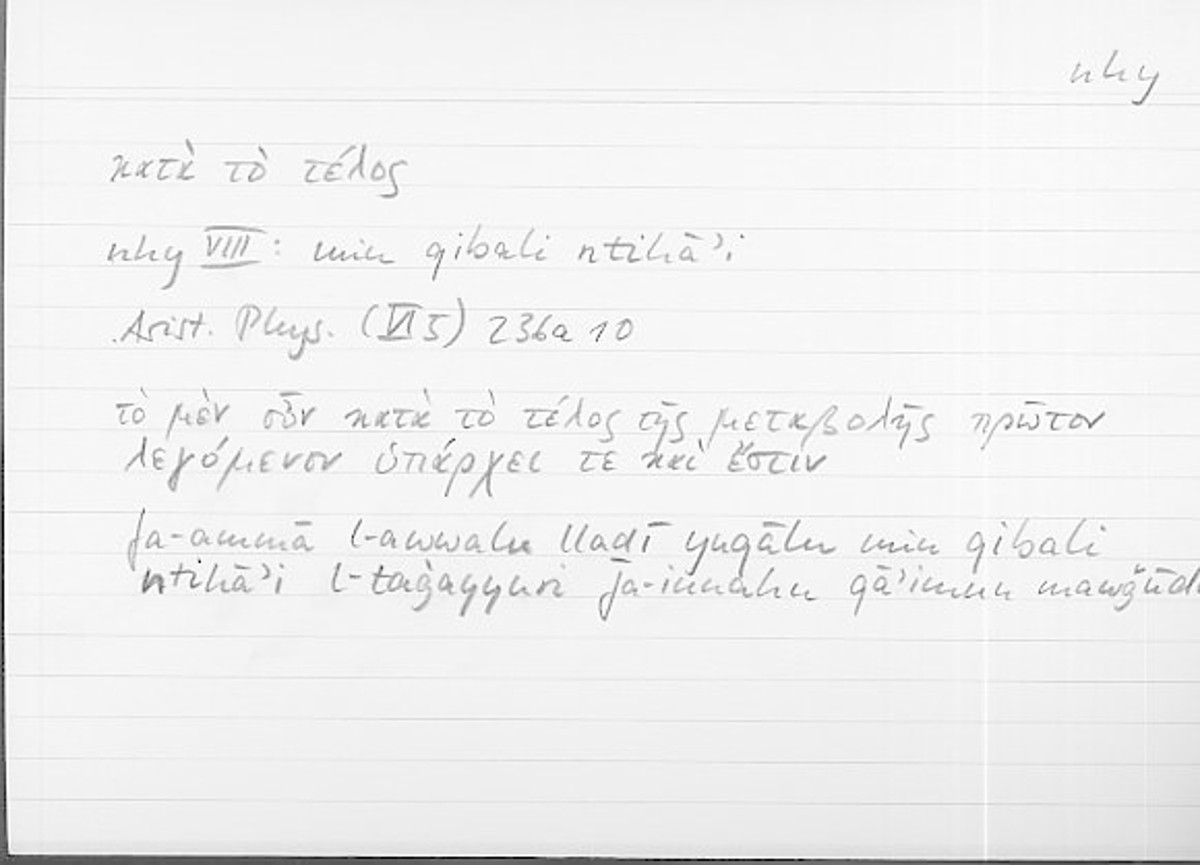 nhy
κατὰ τὸ τέλος
nhy VIII: min qibali ntihāʾi
Arist. Phys. (VI 5) 236a 10
τὸ μὲν οὖν κατὰ τὸ τέλος τῆς μεταβολῆς πρῶτον
λεγόμενον ὑπάρχει τε καὶ ἔστιν
fa-ammā l-awwalu lladī yuqālu min qibali
ntihāʾi l-taġayyuri fa-innahu qāʾimun mawǧūd